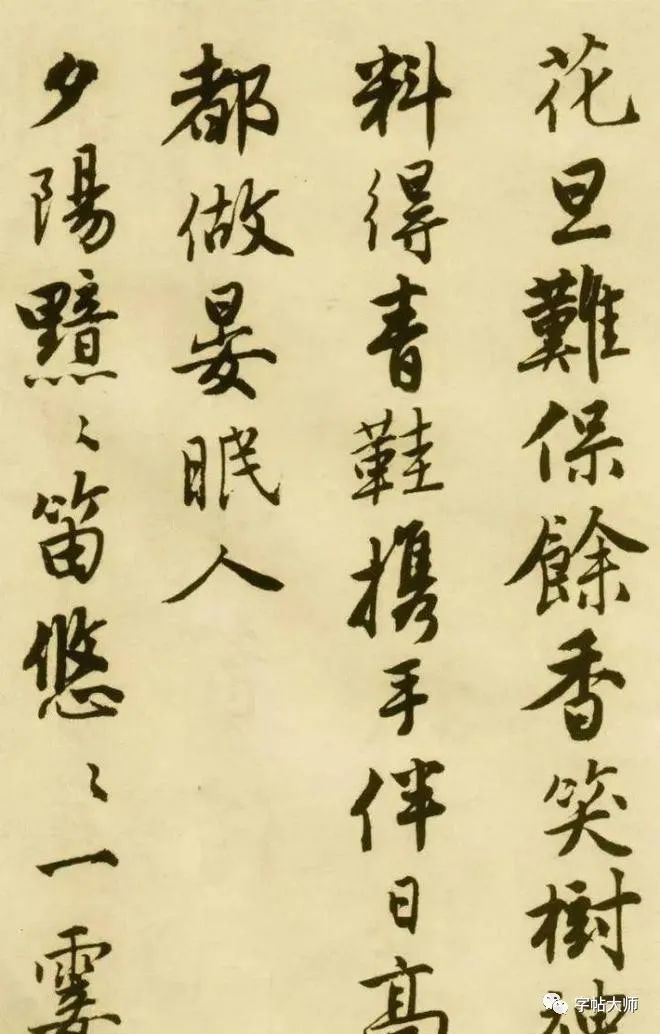 花旦難保餘香笑樹神
料得青鞋攜手伴日高
都做晏眠人
夕陽黯〻笛悠〻一霎
字帖大师